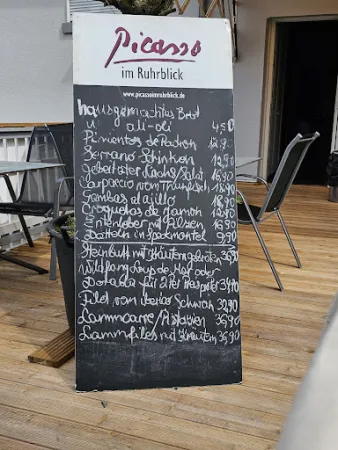 Picasso
im Ruhrblick
www.picassoimruhrblick.de
hausgemachtes Brot
u ali-oli 4,50
Pimientos de Padron
Serrano Schinken 12,90
Lachs/Salat
Carpaccio vom Thunfisch
Gambas al ajillo 18,90
Croquetas de Jamon
mit Pilzen 16,90
Datteln in Speckmantel 9,90
Steinbutt mit Kräutern gebraten
Wildfang Loup de Mer oder
Dorade für 2
Filet vom Iberico Schwein 32,90
Lammcarre/Pistazien 36,90
Lammfilet mit Kräutern 36,90